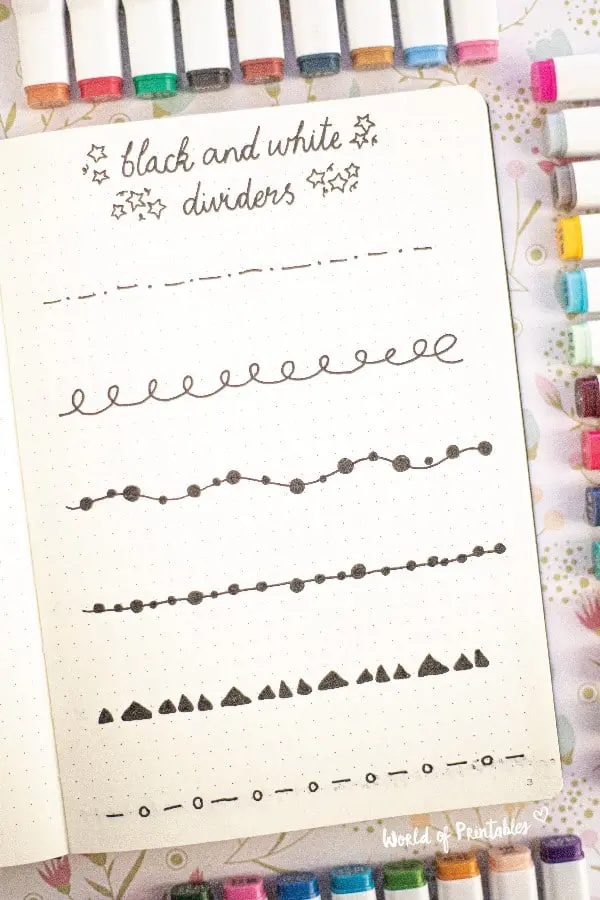 black and white
dividers
3
World of Printables